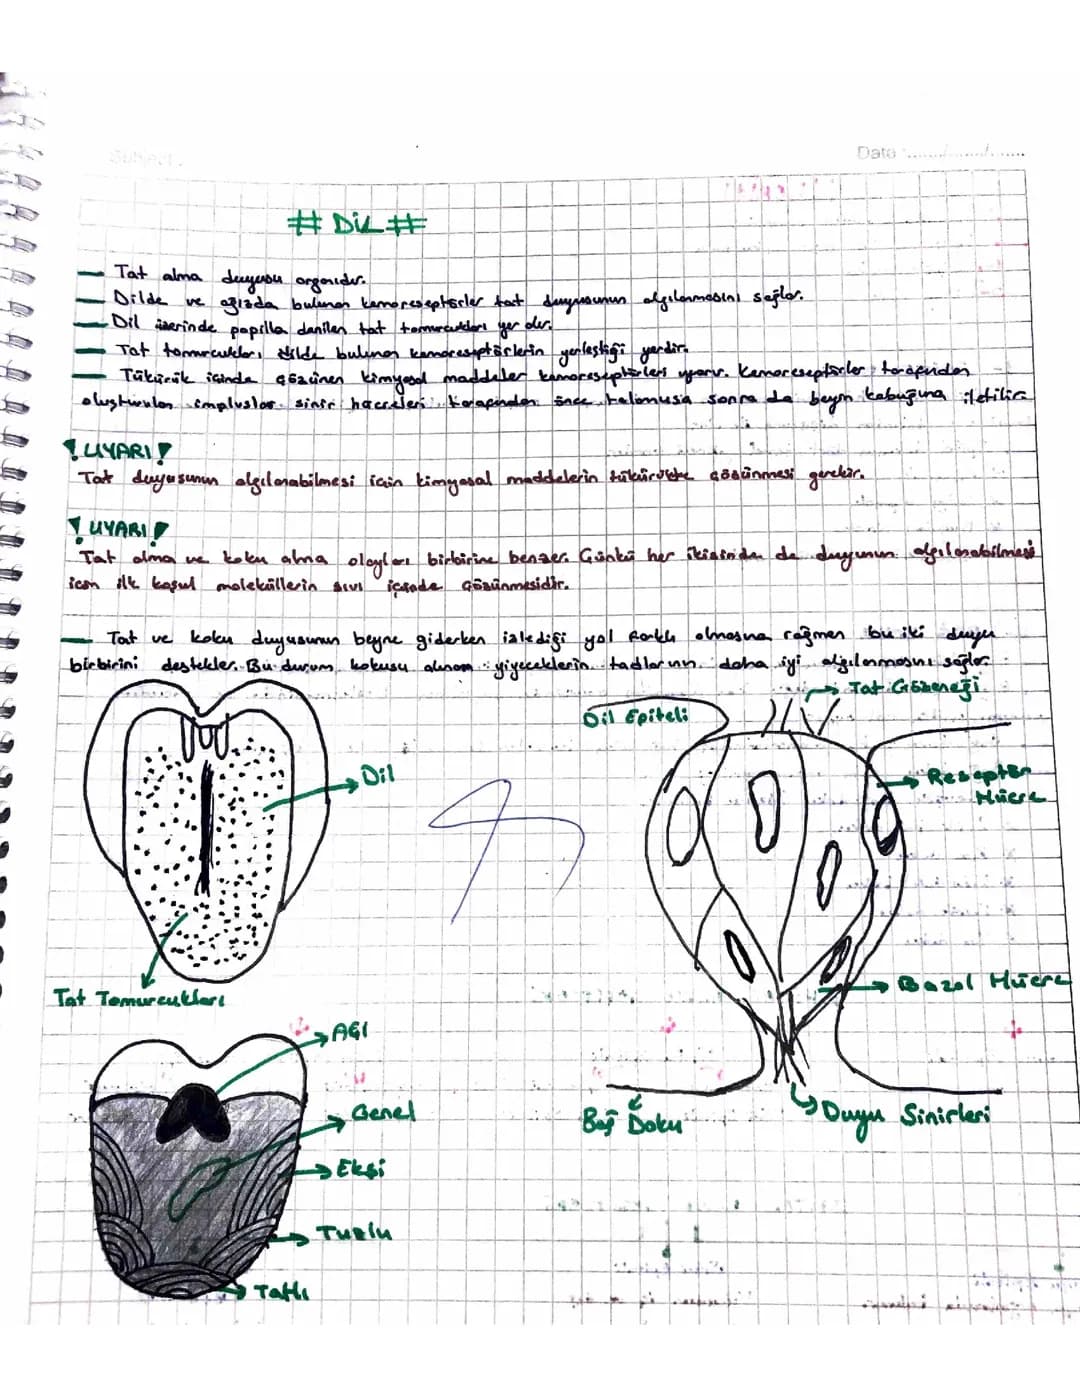 Subject :
Date :......../......../........
# DİL #
— Tat alma duyusu organıdır.
— Dilde ve ağızda bulunan kemoreseptörler tat duyusunun algılanmasını sağlar.
— Dil üzerinde papilla denilen tat tomurcukları yer alır.
— Tat tomurcukları dilde bulunan kemoreseptörlerin yerleştiği yerdir.
— Tükürük içinde çözünen kimyasal maddeler kemoreseptörleri uyarır. Kemoreseptörler tarafından
oluşturulan impluslar sinir hücreleri tarafından önce talamusa sonra da beyin kabuğuna iletilir
! UYARI !
Tat duyusunun algılanabilmesi için kimyasal maddelerin tükürükte çözünmesi gerekir.
! UYARI !
Tat alma ve koku alma olayları birbirine benzer. Çünkü her ikisinde de duyunun algılanabilmesi
için ilk koşul moleküllerin sıvı içinde çözünmesidir.
— Tat ve koku duyusunun beyne giderken izlediği yol farklı olmasına rağmen bu iki duyu
birbirini destekler. Bu durum kokusu alınan yiyeceklerin tadlarının daha iyi algılanmasını sağlar.
Tat Gözeneği
Dil Epiteli
Dil
Reseptör
Hücre
Bazal Hücre
Tat Tomurcukları
Acı
Genel
Bağ Doku
Duyu Sinirleri
Ekşi
Tuzlu
Tatlı